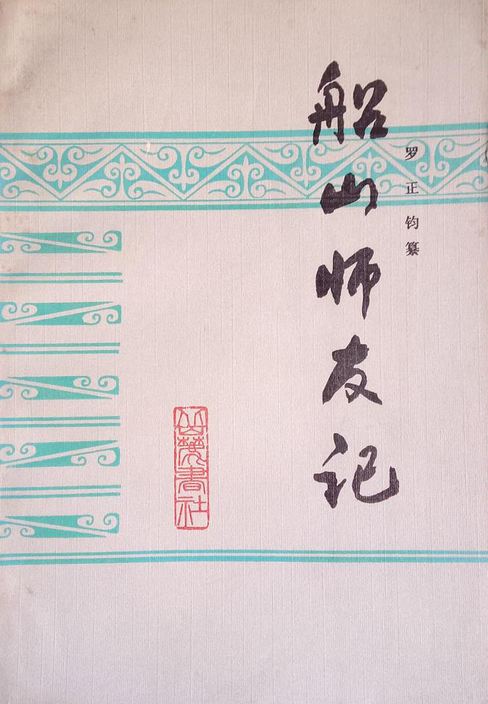 船山师友记
罗正钧纂
岳麓书社